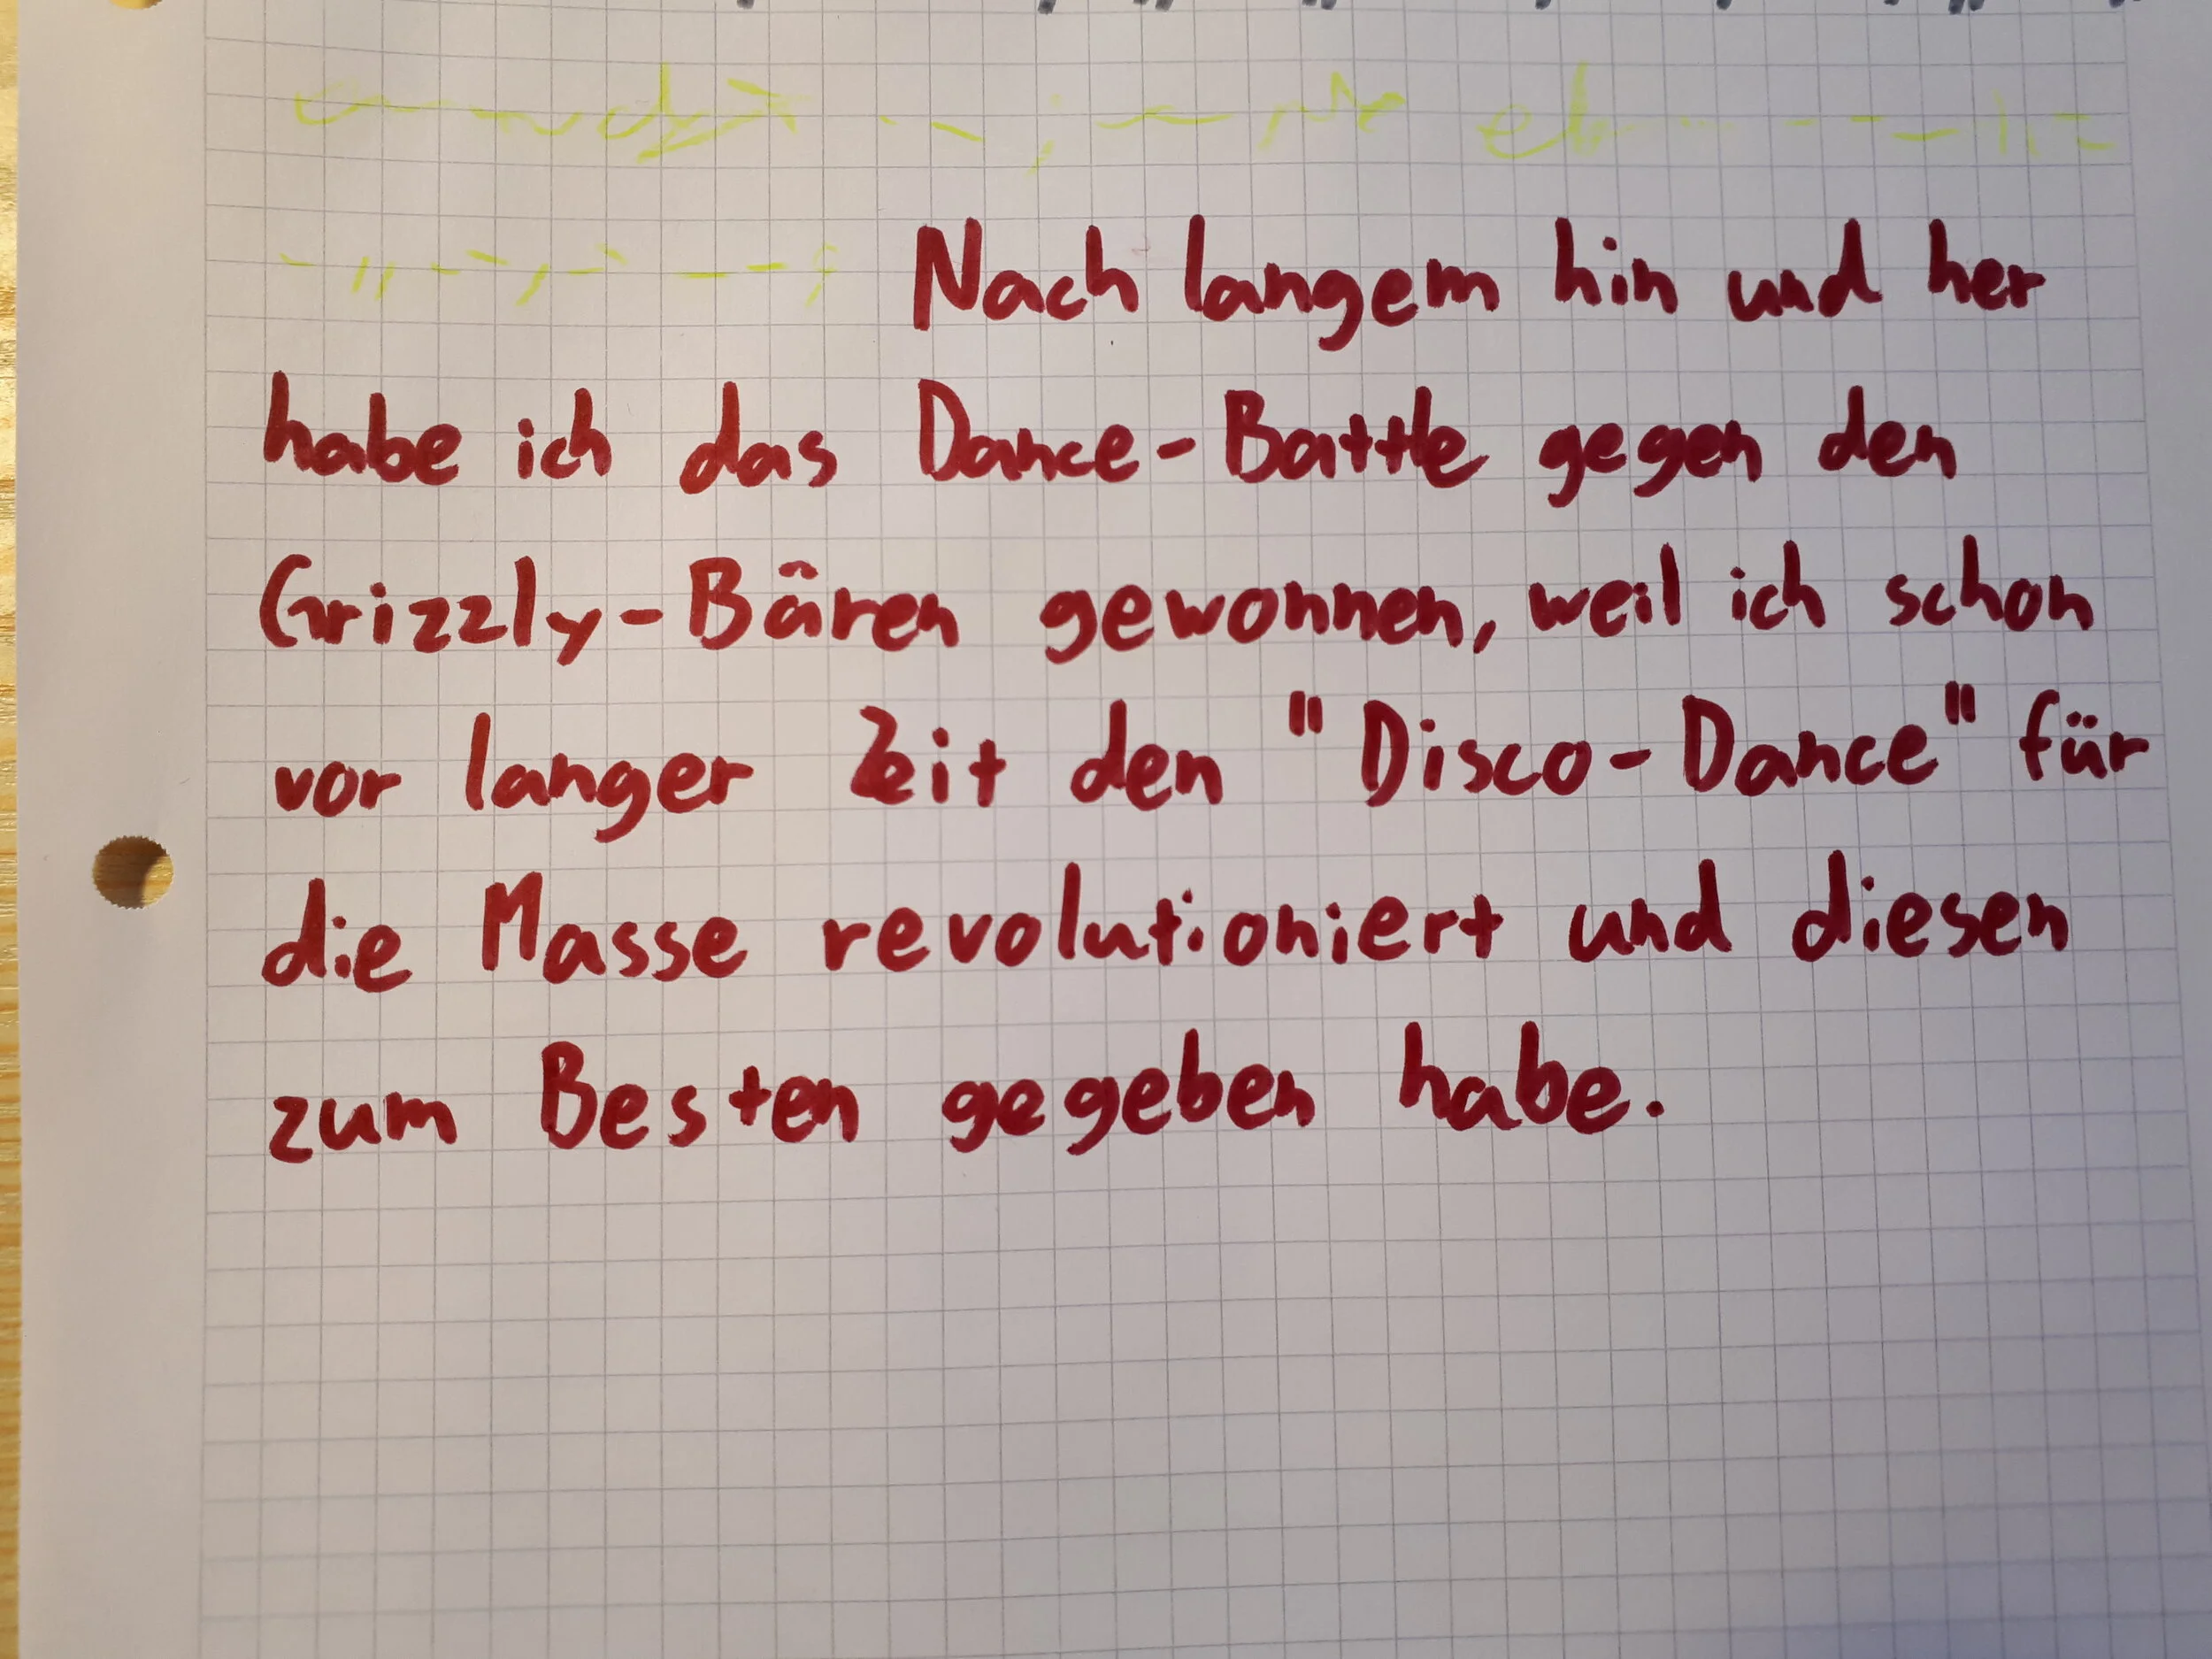 Nach langem hin und her
habe ich das Dance-Battle gegen den
Grizzly-Bären gewonnen, weil ich schon
vor langer Zeit den "Disco-Dance" für
die Masse revolutioniert und diesen
zum Besten gegeben habe.